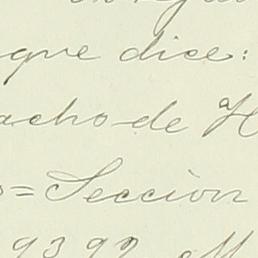 que dice:
acho de H
= Sección
9392